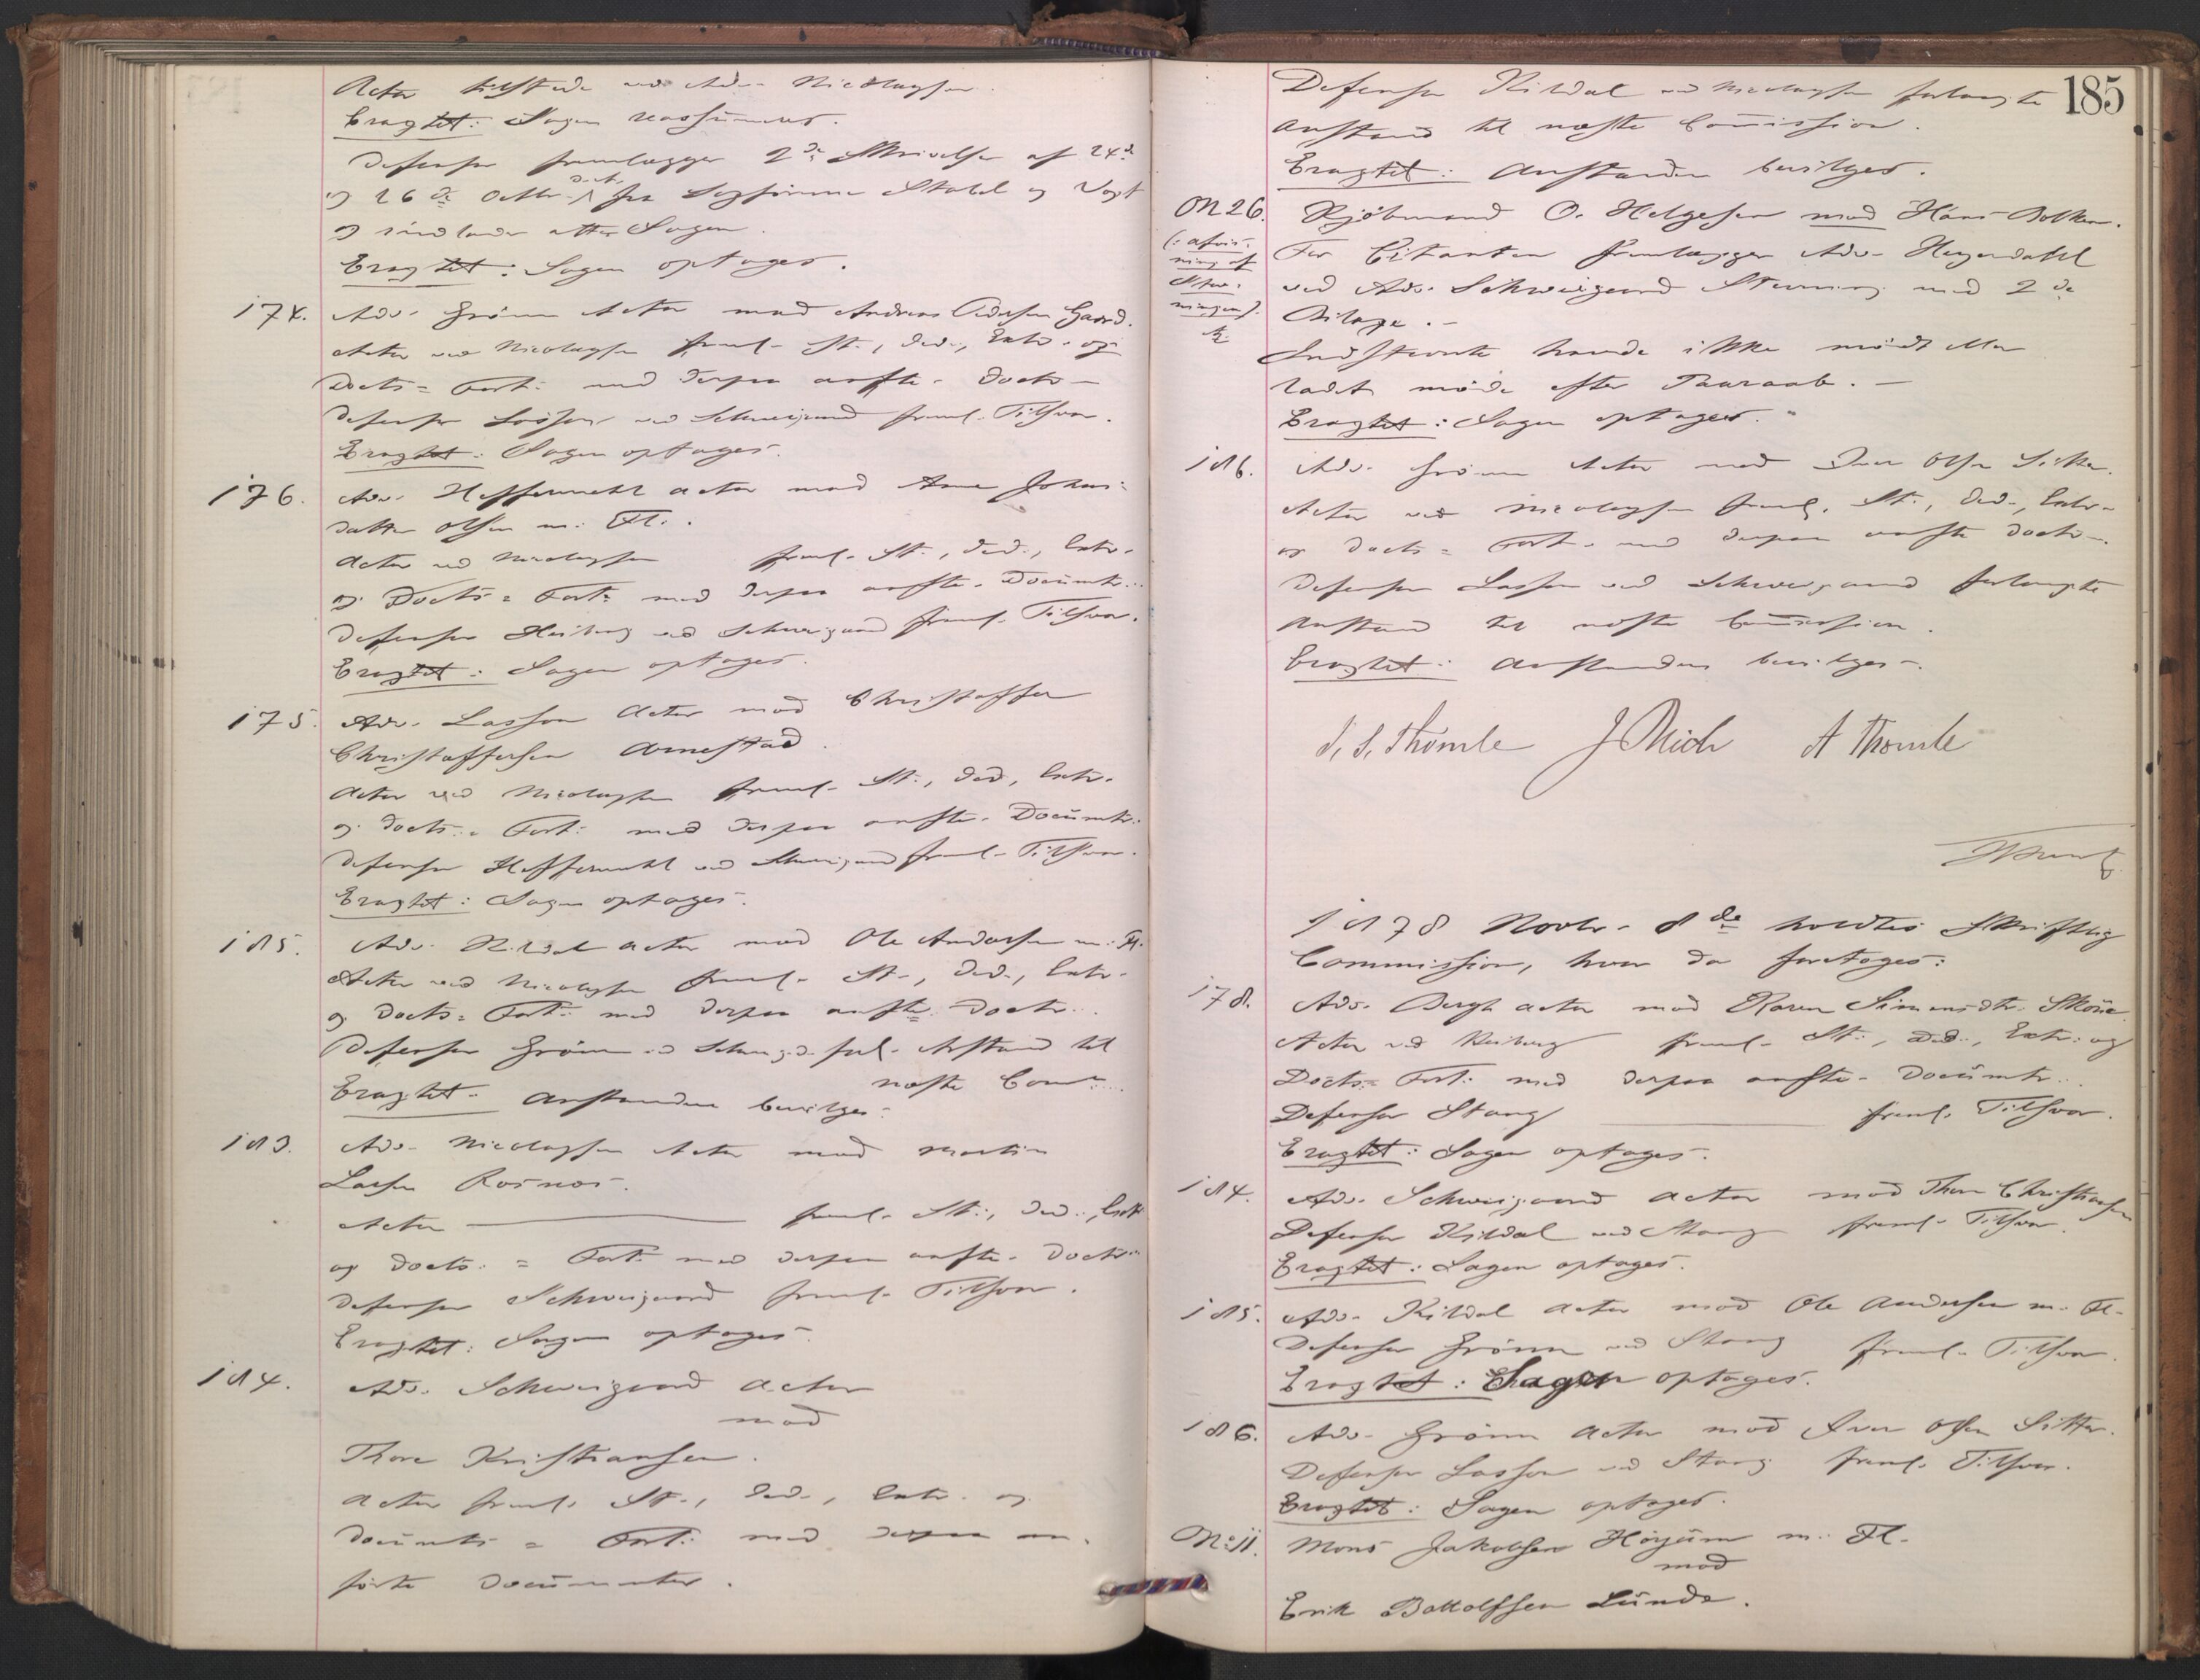 Actor tilstede ved Adv. Nicolaysen.
Eragtet: Sagen reassumeres.
Defensor fremlægger 2de Skrivelser af 24de
og 26de Octbr. fra Sagførerne Stabel og Vogt
og indlader atter Sagen.
Eragtet: Sagen optages.
174. Adv. Grönn Actor mod Andreas Pedersen Gaard.
Actor ved Nicolaysen freml. St., Ded., Extr. og
Docts = Fort. med derpaa anfte. Doctr.
Defensor Lasson ved Schweigaard freml. Tilsvar.
Eragtet: Sagen optages.
176. Adv. Heffermehl Actor mod Anne Johns-
datter Olsen m. Fl.
Actor ved Nicolaysen freml. St., Ded., Extr.
og Docts = Fort: med derpaa anfte. Documtr.
Defensor Heiberg ved Schweigaard freml. Tilsvar.
Eragtet: Sagen optages.
175. Adv. Lasson Actor mod Christoffer
Christoffersen Arnestad.
Actor ved Nicolaysen freml. St., Ded, Extr.
og Docts = Fort: med derpaa anfte. Documtr.
Defensor Heffermehl ved Schweigaard freml. Tilsvar.
Eragtet: Sagen optages.
185. Adv. Kildal Actor mod Ole Andersen m. Fl.
Actor ved Nicolaysen freml. St., Ded., Extr.
og Docts = Fort: med derpaa anfte Doctr.
Defensor Grönn ved Schweigd. forl. Anstand til
næste Comn.
Eragtet: Anstanden bevilges.
183. Adv. Nicolaysen Actor mod Martin
Larsen Rosnes.
Actor freml. St., Ded., Extr
og Docts. = Fort. med derpaa anfte. Doctr.
Defensor Schweigaard freml. Tilsvar.
Eragtet: Sagen optages.
184. Adv. Schweigaard Actor
mod
Thore Kristiansen.
Actor freml. St., Ded., Extr. og
Documts = Fort: med derpaa an-
förte Documenter.
185
Defensor Kildal ved Nicolaysen forlangte
Anstand til næste Commission.
Eragtet: Anstanden bevilges.
M 26. Kjöbmand O. Helgesen mod Hans Bolken.
(: Afvis-
ning af
Stev-
ningen).
For Citanten fremlægger Adv. Heyerdahl
ved Adv. Schweigaard Stevning med 2de
Bilage.
Indstevnte havde ikke mödt eller
ladet möde efter Paaraab.
Eragtet: Sagen optages.
186. Adv. Grönn Actor mod Iver Olsen Sitter.
Actor ved Nicolaysen freml. St., Ded., Extr.
og Docts = Fort. med derpaa anfte Doctr.
Defensor Lasson ved Schweigaard forlangte
Anstand til næste Commission.
Eragtet: Anstanden bevilges.
J. S. Thomle J Mich A Thomle
1878 Novbr. 8de holdtes Skriftlig
Commission, hvor da foretoges:
178. Adv. Bergh Actor mod Karen Simensdtr.
Actor ved Heiberg freml. St., Ded., Extr. og
Docts = Fort: med derpaa anfte. Documtr.
Defensor Stang freml. Tilsvar.
Eragtet: Sagen optages.
184. Adv. Schweigaard Actor mod Thore Christiansen
Defensor Kildal ved Stang freml. Tilsvar.
Eragtet: Sagen optages.
185. Adv. Kildal Actor mod Ole Andersen m. Fl.
Defensor Grönn ved Stang freml. Tilsvar.
Eragtet: Sagen optages.
186. Adv. Grönn Actor mod Iver Olsen Sitter.
Defensor Lasson ved Stang freml. Tilsvar.
Eragtet: Sagen optages.
No 11. Mons Jakobsen Höyum m. Fl.
mod
Erik Bottolfsen Lunde.